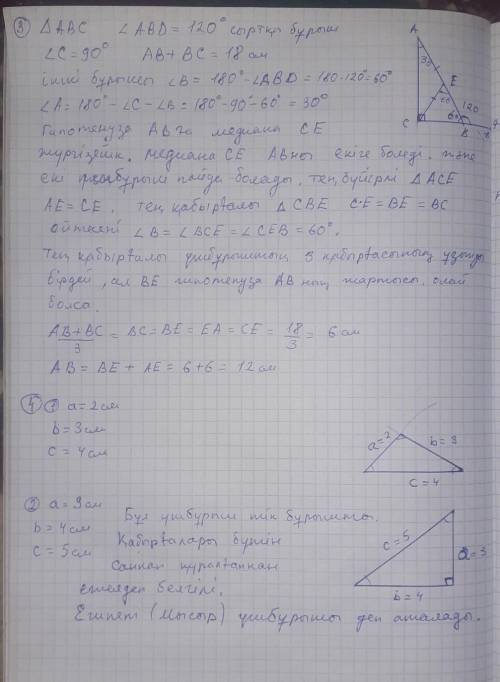 ③ △ABC ∠ABD = 120° сыртқы бұрыш
∠C = 90° AB + BC = 18 см
ішкі бұрышы ∠B = 180° - ∠ABD = 180 - 120° = 60°
∠A = 180° - ∠C - ∠B = 180° - 90° - 60° = 30°
Гипотенуза AB ға медиана CE
жүргізейік. Медиана CE AB ны екіге бөледі. және
екі үшбұрыш пайда болады, тең бүйірлі △ACE
AE = CE, тең қабырғалы △CBE CE = BE = BC
өйткені ∠B = ∠BCE = ∠CEB = 60°.
Тең қабырғалы үшбұрыштың 3 қабырғасының ұзындығы
бірдей, ал BE гипотенуза AB ның жартысы, олай
болса.
AB + BC / 3 = BC = BE = EA = CE = 18 / 3 = 6 см
AB = BE + AE = 6 + 6 = 12 см
A
30
E
60
120
C
60
B
④ ① a = 2 см
b = 3 см
c = 4 см
a = 2
b = 3
c = 4
② a = 3 см
b = 4 см
c = 5 см
Бұл үшбұрыш тік бұрышты.
Қабырғалары бүтін
саннан құралғаннан
ежелден белгілі.
Египет (Мысыр) үшбұрышы деп аталады.
c = 5
a = 3
b = 4